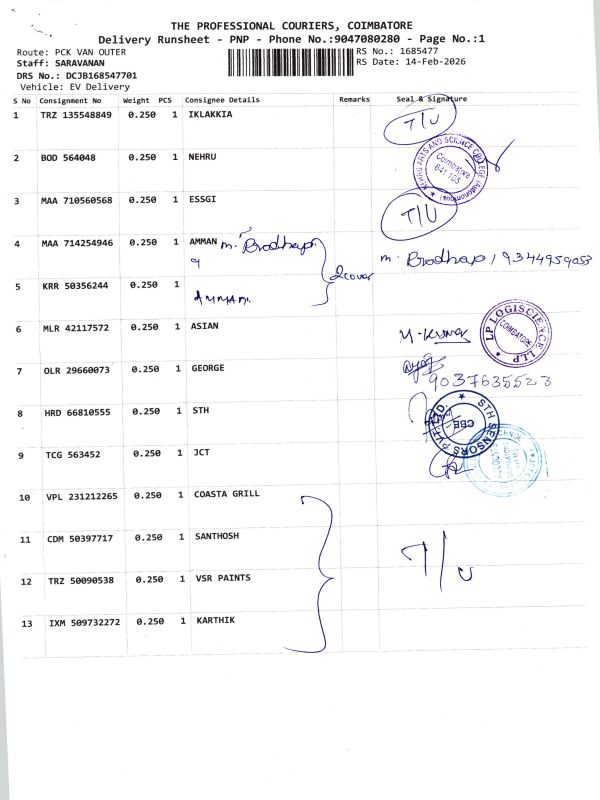 THE PROFESSIONAL COURIERS, COIMBATORE
Delivery Runsheet - PNP - Phone No.:9047080280 - Page No.:1
Route: PCK VAN OUTER
RS No.: 1685477
Staff: SARAVANAN
RS Date: 14-Feb-2026
DRS No.: DCJB168547701
Vehicle: EV Delivery
S No Consignment No Weight PCS Consignee Details Remarks Seal & Signature
1 TRZ 135548849 0.250 1 IKLAKKIA T/U
2 BOD 564048 0.250 1 NEHRU
NEHRU ARTS AND SCIENCE COLLEGE (Autonomous) Coimbatore 641 105
3 MAA 710560568 0.250 1 ESSGI T/U
4 MAA 714254946 0.250 1 AMMAN m. Pradhap. m. Pradhap / 9344959053
2 cover
5 KRR 50356244 0.250 1 AMMAN.
6 MLR 42117572 0.250 1 ASIAN
LP LOGISCIENCE LLP COIMBATORE
7 OLR 29660073 0.250 1 GEORGE 9037635523
8 HRD 66810555 0.250 1 STH
STH SENSORS PVT LTD. CBE
9 TCG 563452 0.250 1 JCT
10 VPL 231212265 0.250 1 COASTA GRILL
11 CDM 50397717 0.250 1 SANTHOSH T/U
12 TRZ 50090538 0.250 1 VSR PAINTS
13 IXM 509732272 0.250 1 KARTHIK